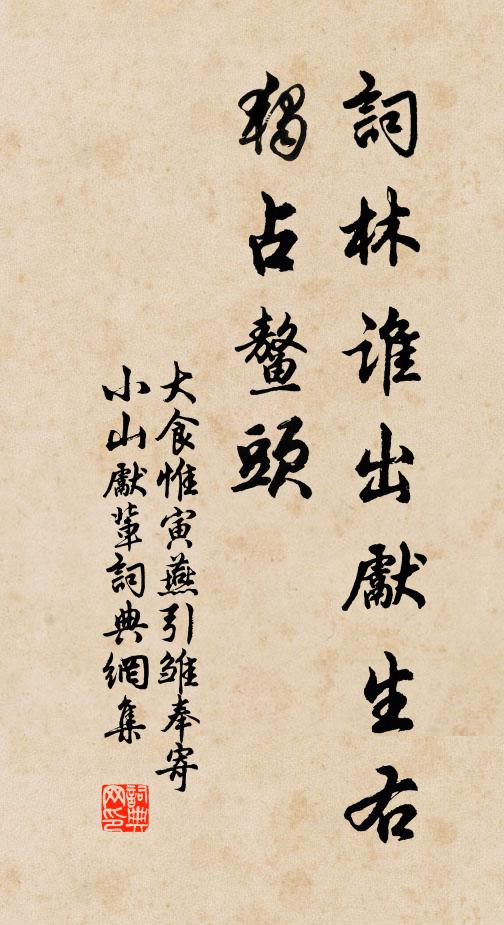 詞林誰出獻生右
獨占鰲頭
大食惟寅燕引雛奉寄
小山獻輩詞典網集
詞典
网印